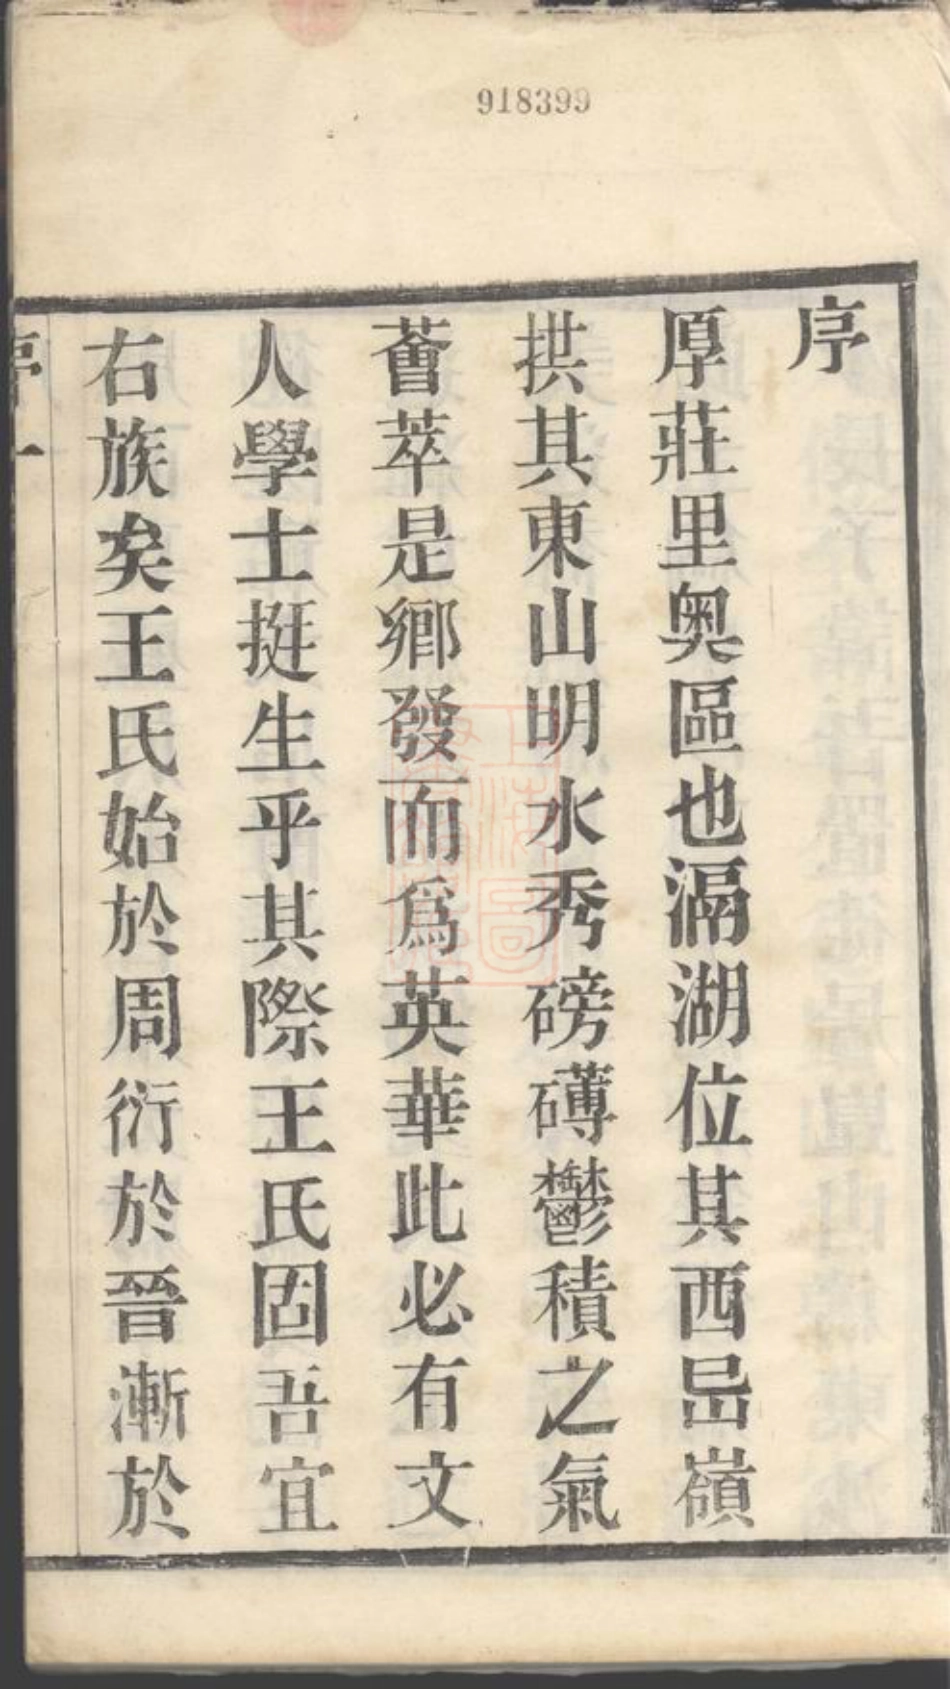 918399
序
厚莊里奥區也滆湖位其西嵒嶺
拱其東山明水秀磅礴鬱積之氣
薈萃是鄉發而爲英華此必有文
人學士挺生乎其際王氏固吾宜
右族矣王氏始於周衍於晉漸於
序一